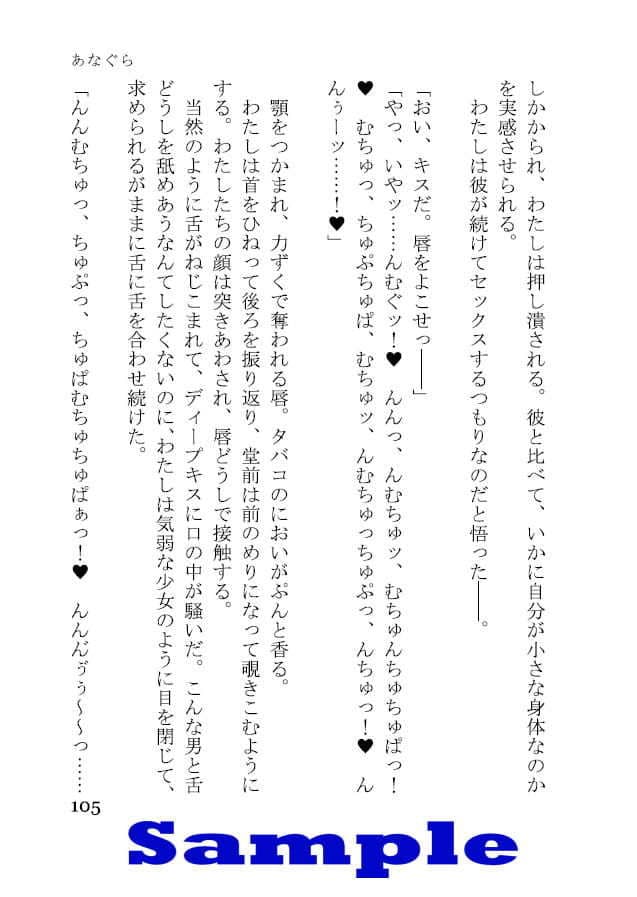 あなぐら
しかかられ、わたしは押し潰される。彼と比べて、いかに自分が小さな身体なのか
を実感させられる。
わたしは彼が続けてセックスするつもりなのだと悟った――。
「おい、キスだ。唇をよこせっ――」
「やっ、いやッ……んむぐッ！♥　んんっ、んむちゅッ、むちゅんちゅちゅぱっ！
♥　むちゅっ、ちゅぷちゅぱ、むちゅッ、んむちゅっちゅぷっ、んちゅっ！♥　ん
んぅーッ……！♥」
顎をつかまれ、力ずくで奪われる唇。タバコのにおいがぷんと香る。
わたしは首をひねって後ろを振り返り、堂前は前のめりになって覗きこむように
する。わたしたちの顔は突きあわされ、唇どうしで接触する。
当然のように舌がねじこまれて、ディープキスに口の中が騒いだ。こんな男と舌
どうしを舐めあうなんてしたくないのに、わたしは気弱な少女のように目を閉じて、
求められるがままに舌に舌を合わせ続けた。
「んんむちゅっ、ちゅぷっ、ちゅぱむちゅちゅぱぁっ！♥　んんん゙ぅぅ～～っ……
105
Sample